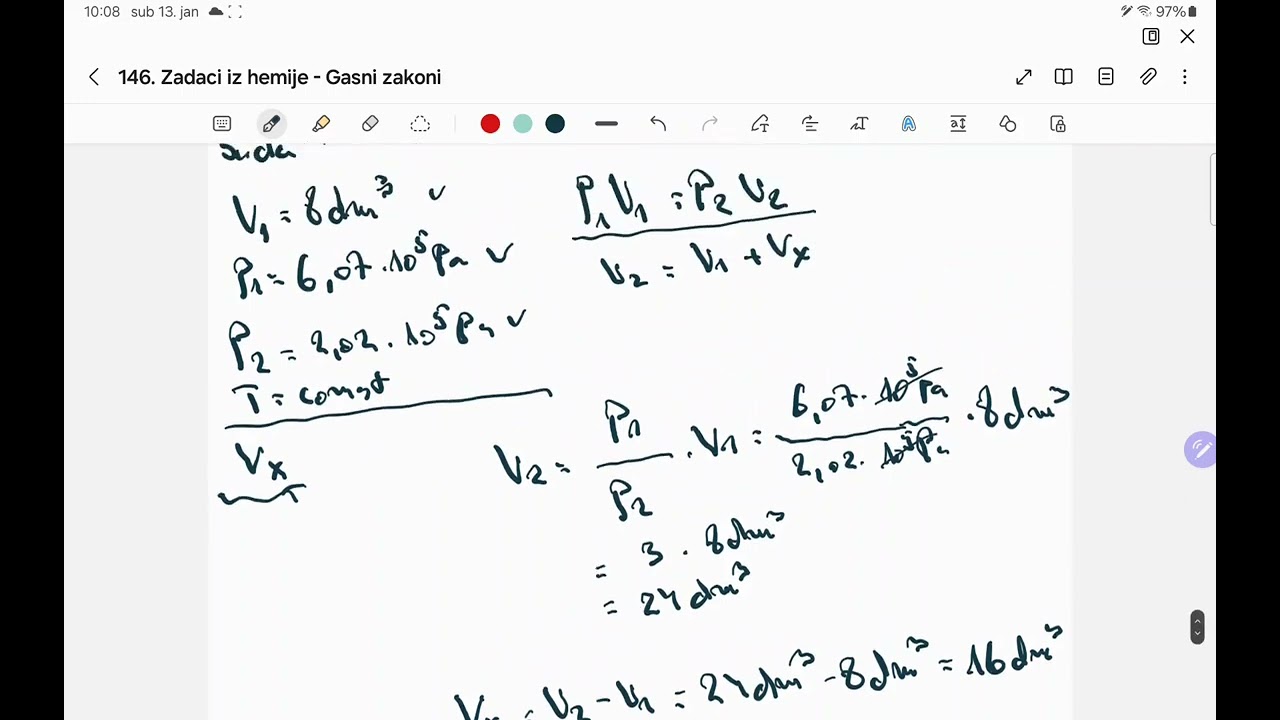 10:08 sub 13. jan
97%
146. Zadaci iz hemije - Gasni zakoni
suda
V₁ = 8 dm³ ✓
P₁ = 6,07 · 10⁵ Pa ✓
P₂ = 2,02 · 10⁵ Pa ✓
T = const
Vx
P₁ V₁ = P₂ V₂
V₂ = V₁ + Vx
V₂ = P₁ / P₂ · V₁ = 6,07 · 10⁵ Pa / 2,02 · 10⁵ Pa · 8 dm³
= 3 · 8 dm³
= 24 dm³
Vx = V₂ - V₁ = 24 dm³ - 8 dm³ = 16 dm³